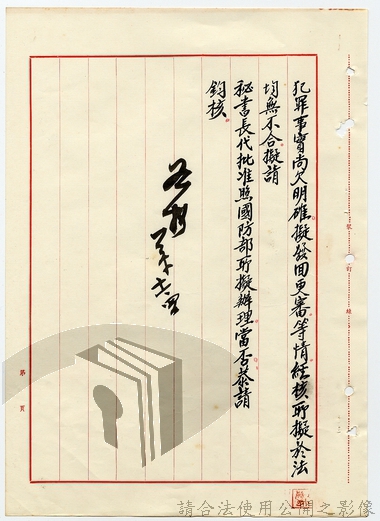 犯罪事實尚欠明確擬發回更審等情經核所擬於法
均無不合擬請
秘書長代批准照國防部所擬辦理當否恭請
鈞核
裝訂線
第 頁
請合法使用公開之影像